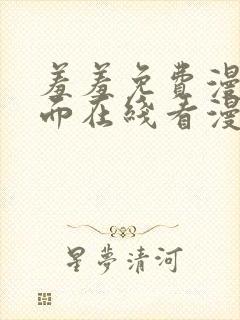 羞羞免費漫
而在綫看漫
星夢清河